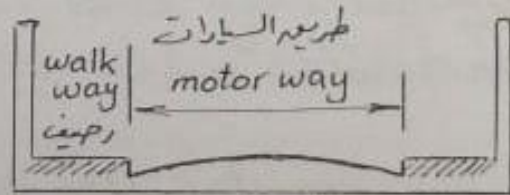 طريق السيارات
walk
way
motor way
رصيف